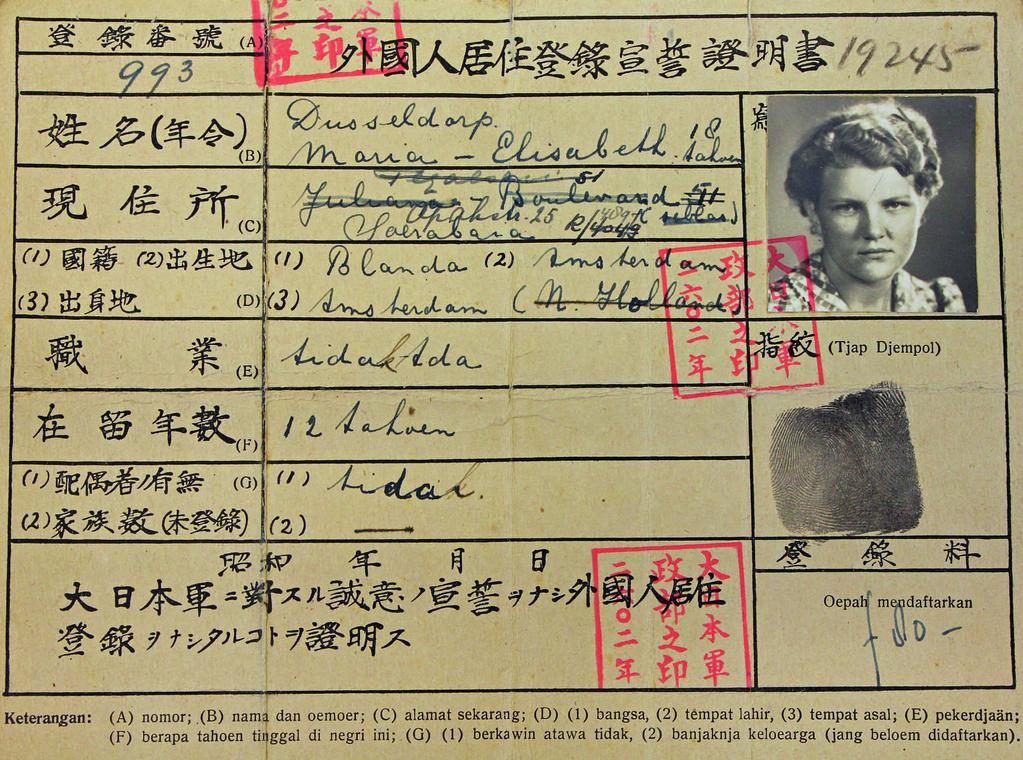 登錄番號 (A)
993
外國人居住登錄宣誓證明書 19245
姓名(年令) (B)
Dusseldorp.
Maria - Elisabeth. 18 tahoen
寫
現住所 (C)
51
Juliana Boulevard
25
Soerabaia
(1) 國籍 (2) 出生地
(3) 出身地 (D)
(1) Blanda (2) Amsterdam
(3) Amsterdam (N. Holland)
職業 (E)
tidak Ada
指紋 (Tjap Djempol)
在留年數 (F)
12 tahoen
(1) 配偶者ノ有無 (G)
(2) 家族數(未登錄)
(1) tidak.
(2) —
昭和 年 月 日
大日本軍ニ對スル誠意ノ宣誓ヲナシ外國人居住
登錄ヲナシタルコトヲ證明ス
登錄料
Oepah mendaftarkan
f 80 -
大日本軍
政部之印
二六〇二年
大日本軍
政部之印
二六〇二年
Keterangan: (A) nomor; (B) nama dan oemoer; (C) alamat sekarang; (D) (1) bangsa, (2) tempat lahir, (3) tempat asal; (E) pekerdjaän;
(F) berapa tahoen tinggal di negri ini; (G) (1) berkawin atawa tidak, (2) banjaknja keloearga (jang beloem didaftarkan).